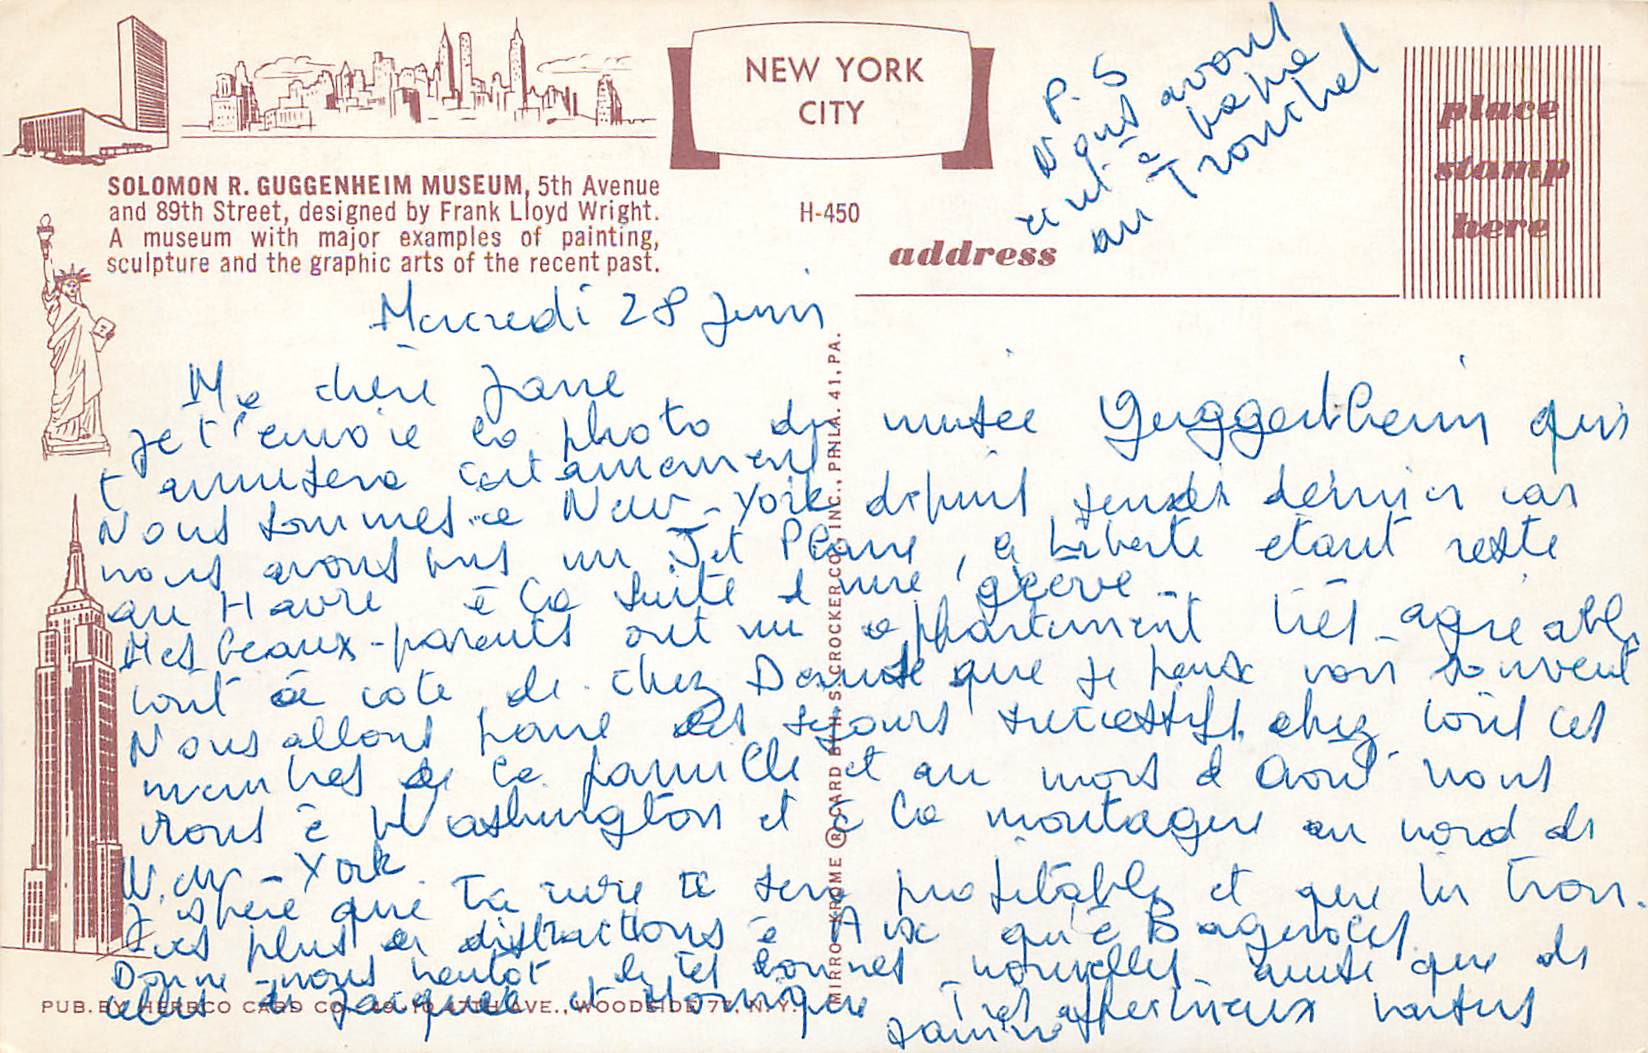 NEW YORK
CITY
place
stamp
here
SOLOMON R. GUGGENHEIM MUSEUM, 5th Avenue
and 89th Street, designed by Frank Lloyd Wright.
A museum with major examples of painting,
sculpture and the graphic arts of the recent past.
H-450
address
P.S
Nous avons
écrit à
au Tronchet
Mercredi 28 Juin
Ma chère Jane
Je t'envoie la photo du musée Guggenheim qui
t'amusera certainement
Nous sommes à New-York depuis lundi dernier car
nous avons pris un Jet Plane, le Liberté étant resté
au Havre à la suite d'une grève.
Mes beaux-parents ont un appartement très agréable
tout à côté de chez Danièle que je peux voir souvent
Nous allons faire des séjours successifs chez tous les
membres de la famille et au mois d'Août nous
irons à Washington et à la montagne au nord de
New-York
J'espère que ta cure te sera profitable et que tu trou-
ves plus de distractions à Aix qu'à Bagnoles.
Donne-nous bientôt de tes bonnes nouvelles ainsi que de
celles de Jacques et Monique Très affectueux baisers
MIRRO-KROME ® CARD BY H. S. CROCKER CO., INC., PHILA. 41, PA.
PUB. BY HERBCO CARD CO., AVE., WOODSIDE 77, N.Y.